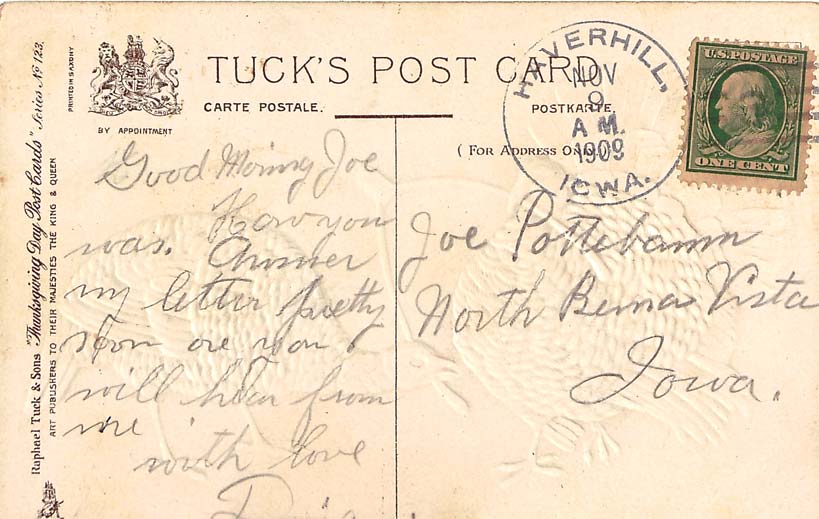 TUCK'S POST CARD
CARTE POSTALE.
POSTKARTE.
BY APPOINTMENT
( FOR ADDRESS ONLY.)
PRINTED IN SAXONY
Raphael Tuck & Sons "Thanksgiving Day Post Cards" Series Nº 123.
ART PUBLISHERS TO THEIR MAJESTIES THE KING & QUEEN
HAVERHILL,
NOV
9
A M.
1909
IOWA.
U.S. POSTAGE
ONE CENT
Good Morning Joe
How you
was. Answer
my letter pretty
soon ore you
will hear from
me
with love
Joe Pottebaum
North Beuna Vista
Iowa.